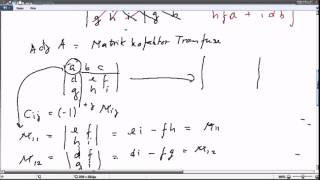 g h k g h
hfa + idb
Adj A = Matrik kofaktor Tranfuse
a b c
d e f
g h i
Cij = (-1)^i+j Mij
M11 = | e f h i | = ei - fh = M11
M12 = | d f g i | = di - fg = M12